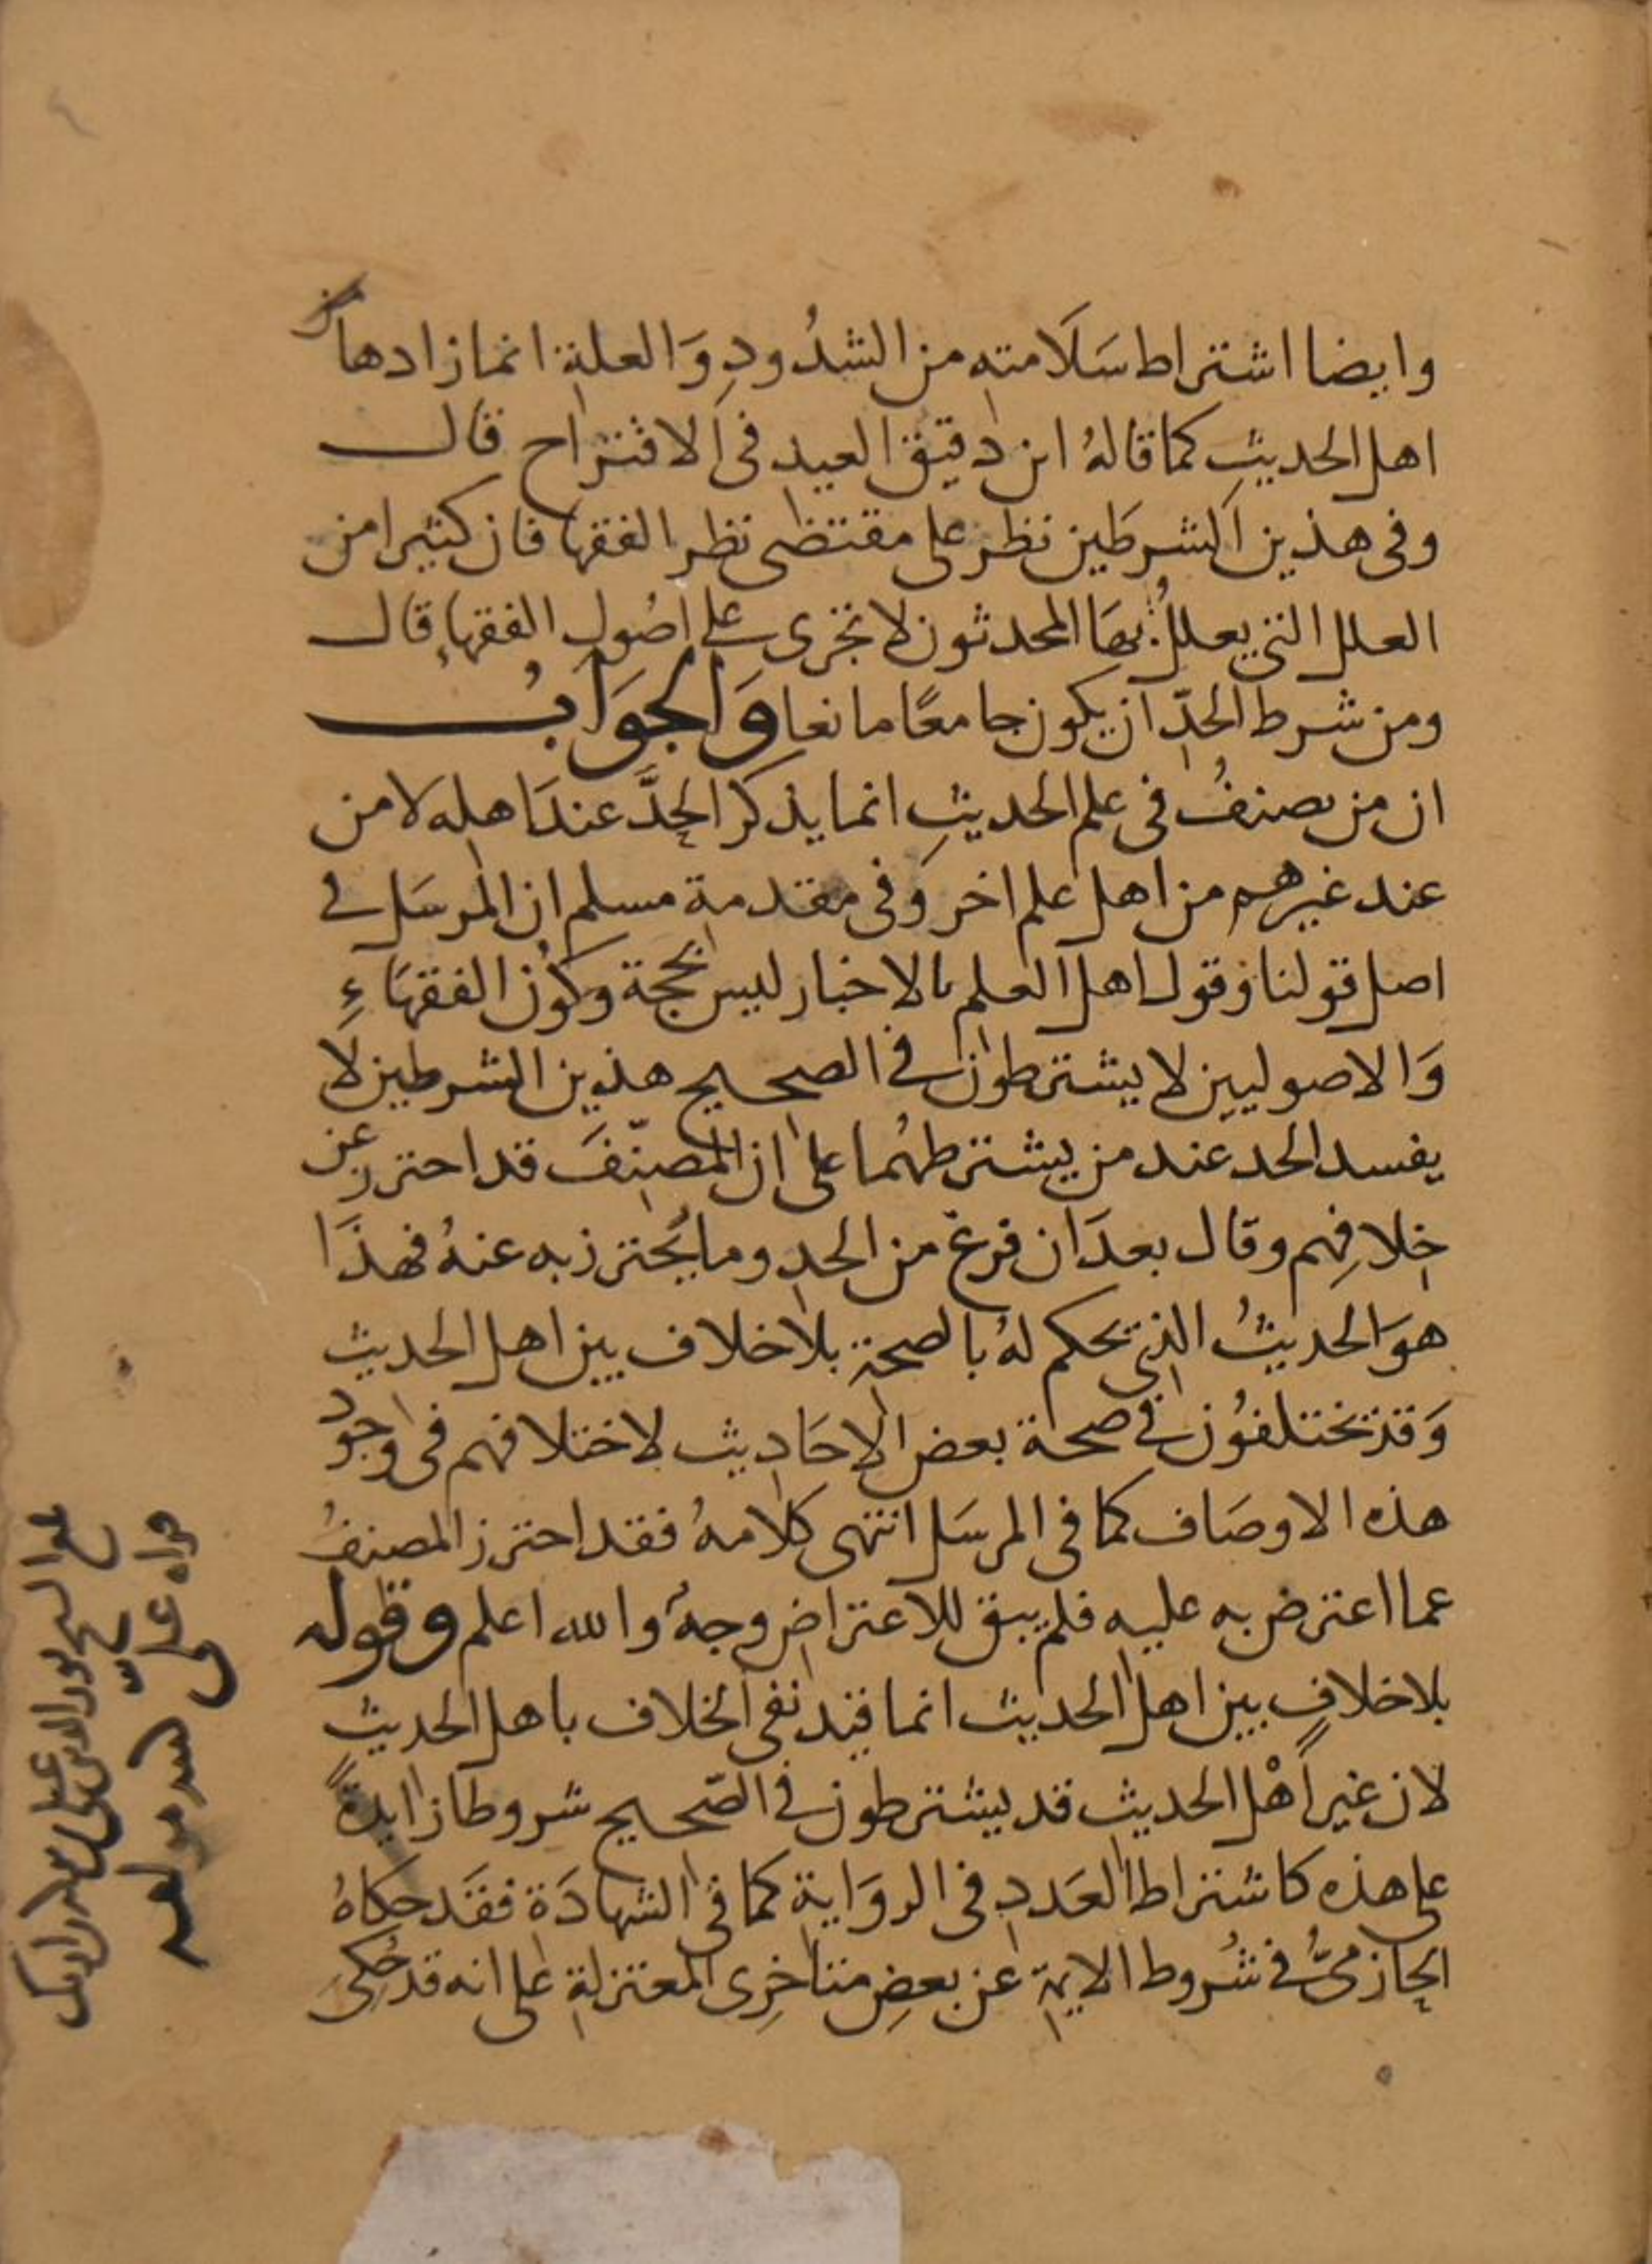 وايضا اشتراط سَلَامته من الشذُودِ وَالعلةِ انما زادها
اهل الحديثِ كما قالهُ ابن دقيق العيدِ فى الاقتراح قال
وفى هذين الشرطَين نظر على مقتضى نظر الفقها فان كثيرا من
العلل التي يعللُ بهَا المحدثون لا تجرى على اصُولِ الفقهاءِ قال
ومن شرط الحدِّ ان يكون جامعًا مانعا وَالجوَابُ
ان من يصنفُ فى علم الحديثِ انما يذكر الحدَّ عندَ اهله لا من
عند غيرهم من اهل علم اخر وَفى مقدمة مسلم ان المرسَل في
اصل قولنا وقول اهل العلم بالاخبار ليس بحجة وكوْن الفقهَاءِ
وَالاصوليين لا يشترطون في الصحيح هذين الشرطين لَا
يفسد الحد عند من يشترطهُما على ان المصنِّفَ قد احترز عن
خِلافِهم وقال بعدَ ان فرغ من الحدِ وما يُحترز به عنهُ فهذَا
هوَ الحديثُ الذي يحكم لهُ بالصحةِ بلا خلاف بين اهل الحديث
وَقد يختلفوُن في صحة بعض الاحَاديث لاختلافهم فى وجود
هذه الاوصَاف كما فى المرسَل انتهى كلامهُ فقد احترز المصنفُ
عما اعترض به عليه فلم يبق للاعتراضِ وجهٌ والله اعلم وقوله
بلا خلافٍ بين اهل الحديث انما قيد نفى الخلاف باهل الحديثِ
لان غير اهْل الحديثِ قد يشترطون في الصّحيح شروطا زايدةً
على هذه كاشتراط العَددِ فى الروَايةِ كما فى الشهادَة فقَد حكاهُ
الحازمىُّ في شُروط الايمةِ عن بعضِ متاخرِى المعتزلةِ على انه قد حُكىَ